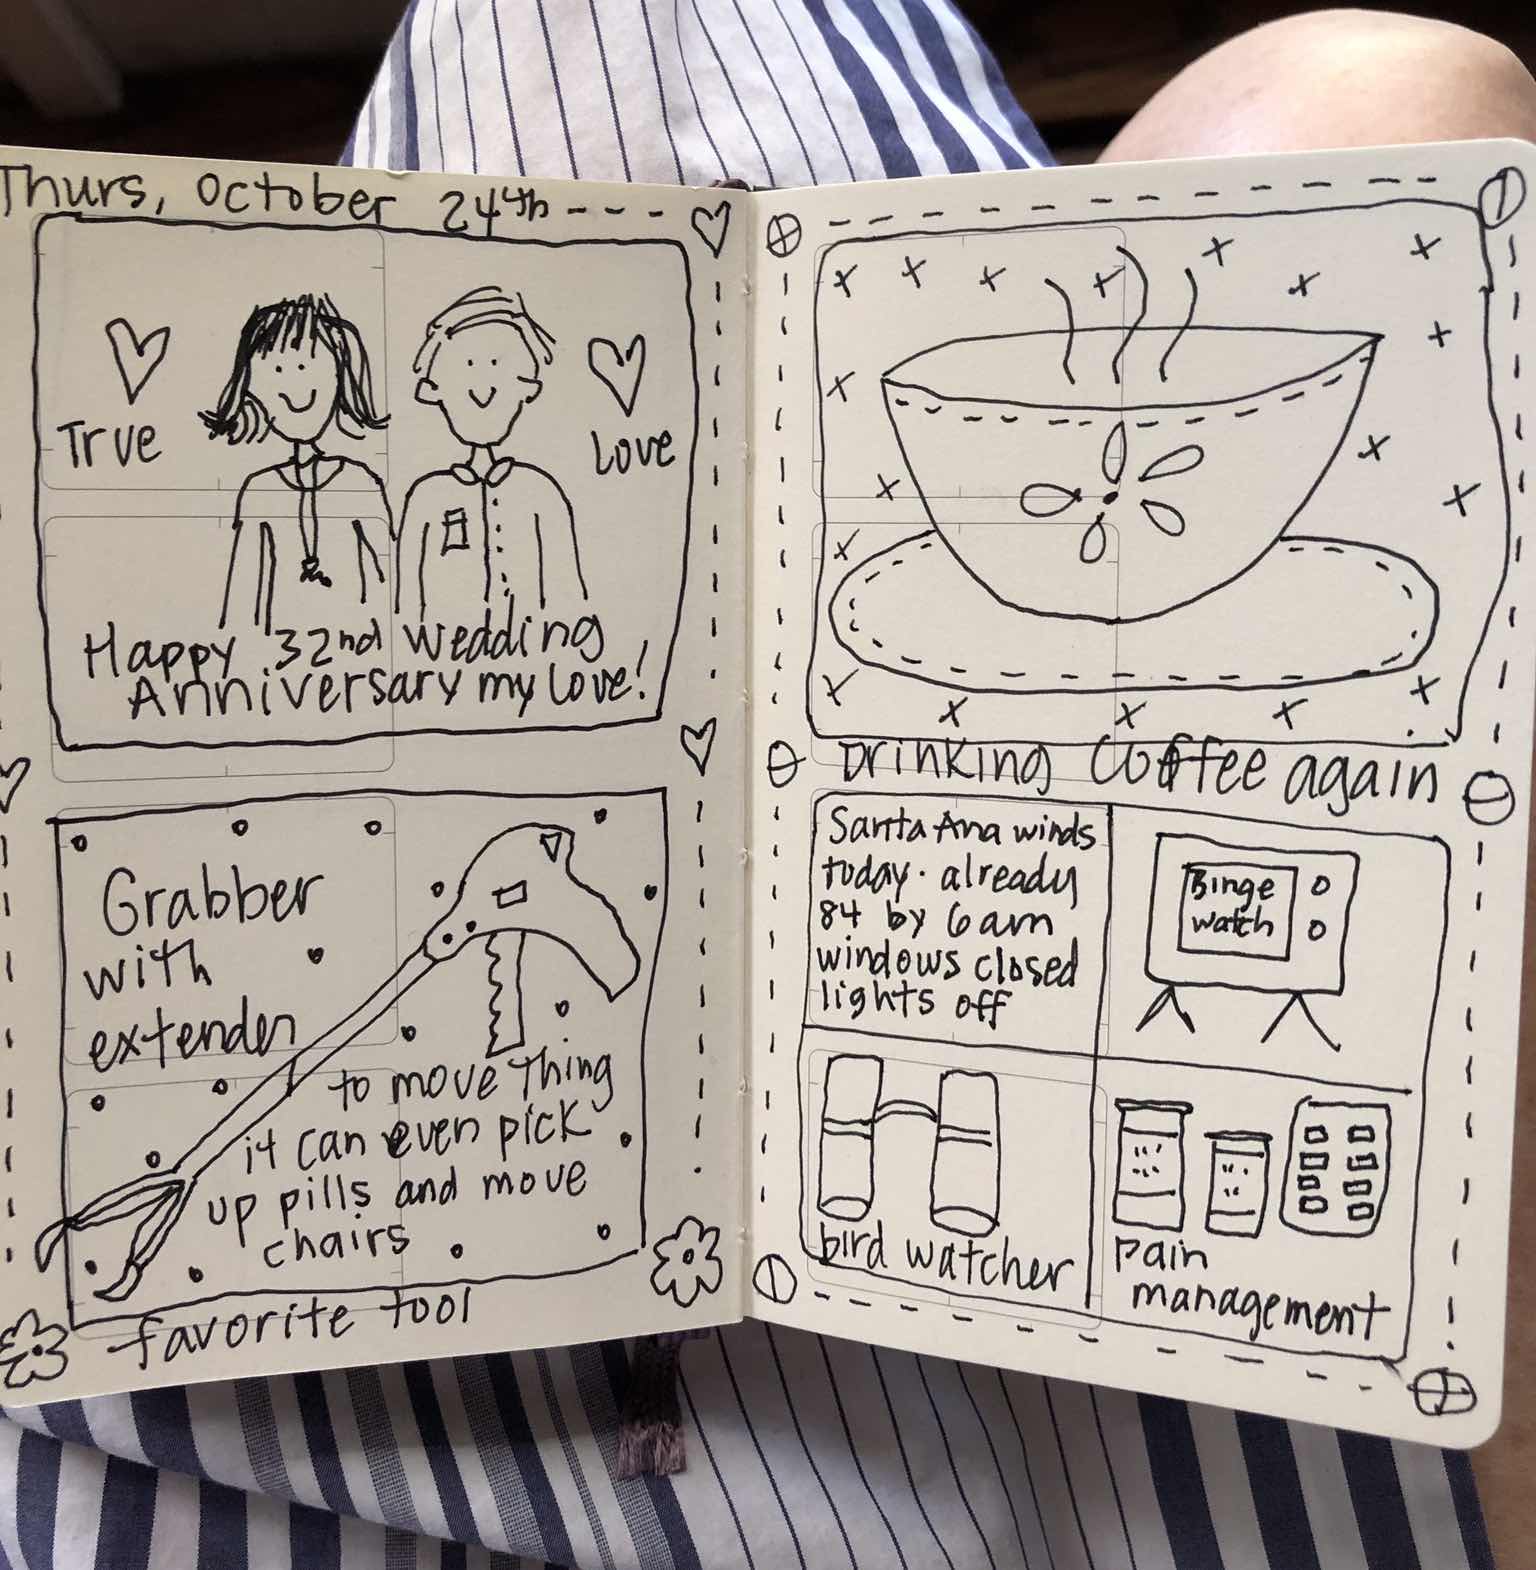 Thurs, October 24th
True
Love
Happy 32nd Wedding
Anniversary my Love!
Grabber
with
extender
to move thing
it can even pick
up pills and move
chairs
favorite tool
Drinking Coffee again
Santa Ana winds
today. already
84 by 6am
windows closed
lights off
Binge
watch
bird watcher
pain
management